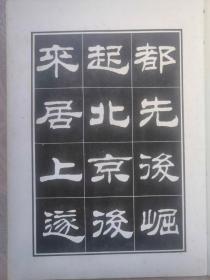 都先後崛
起北京後
來居上遂